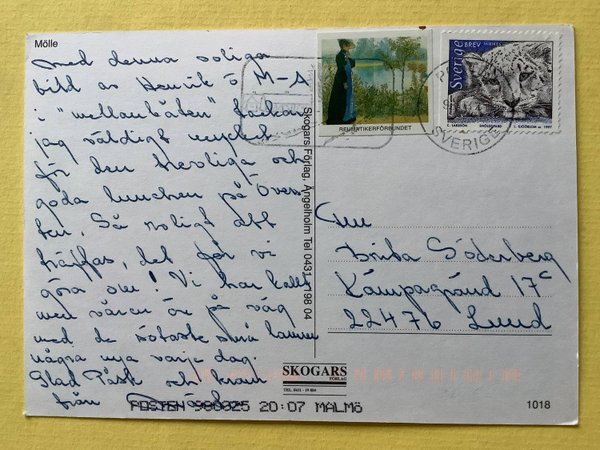 Mölle
Med denna soliga
bild av Henrik o M-A
i "mellanbåten" tackar
jag väldigt mycket
för den trevliga och
goda lunchen på Över-
sten. Så roligt att
träffas, det gör vi
göra om! Vi har kallt
men våren är på väg
med de sötaste små lamm
några nya varje dag.
Glad Påsk och kram
från
Skogars Förlag, Ängelholm Tel 0431-198 04
REUMATIKERFÖRBUNDET
Sverige BREV
SVERIGE
Brita Söderberg
Kämpagränd 17c
22476 Lund
SKOGARS
FÖRLAG
TEL. 0431 - 19 804
POSTEN 980025 20:07 MALMÖ
1018